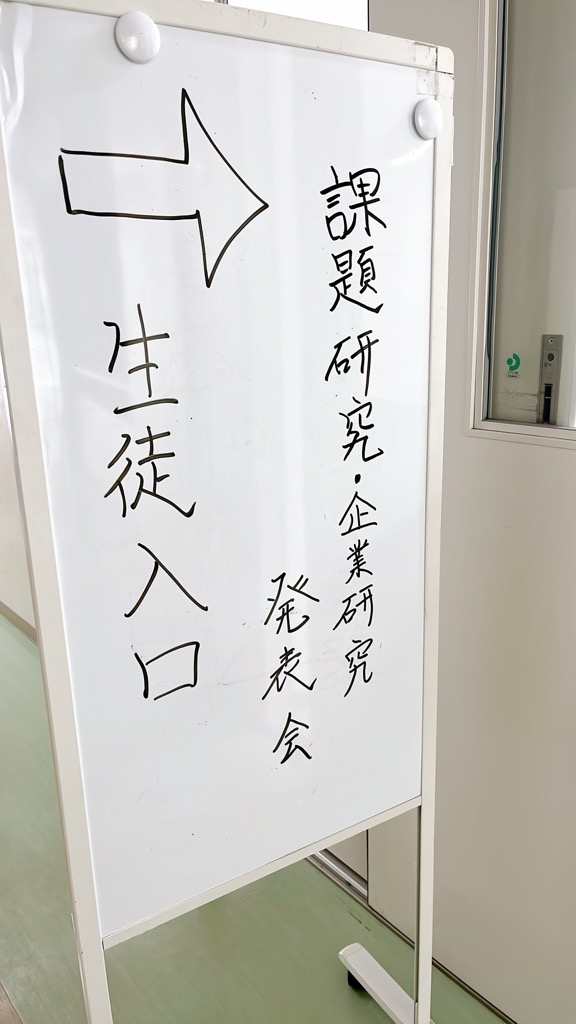 課題研究・企業研究
発表会
生徒入口